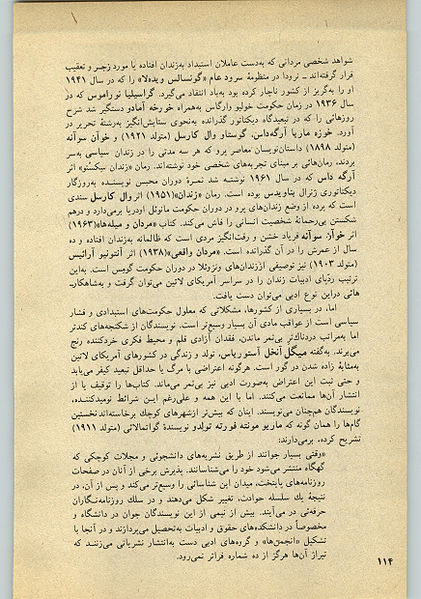 شواهد شخصی مردانی که به‌دست عاملان استبداد به‌زندان افتاده یا مورد زجر و تعقیب
قرار گرفته‌اند ـ نرودا در منظومهٔ سرود عام «گونسالس ویده‌لا» را که در سال ۱۹۴۱
او را به‌گریز از کشور ناچار کرده بود به‌باد انتقاد می‌گیرد. گراسیلیا نوراموس که در
سال ۱۹۳۶ در زمان حکومت خولیو وارگاس به‌همراه خورخه آمادو دستگیر شد شرح
روزهائی را که در تبعیدگاه دیکتاتور گذرانده به‌نحوی ستایش‌انگیز به‌رشتهٔ تحریر در
آورد. خوزه ماریا آرگه‌داس، گوستاو وال کارسل (متولد ۱۹۲۱) و خوان سوآنه
(متولد ۱۸۹۸) داستان‌نویسان معاصر پرو که هر سه مدتی را در زندان سیاسی به‌سر
بردند، رمان‌هائی بر مبنای تجربه‌های شخصی خود نوشته‌اند. رمان «زندان سیکستو» اثر
آرگه داس که در سال ۱۹۶۱ نوشته شد ثمرهٔ دوران محبس نویسنده به‌روزگار
دیکتاتوری ژنرال بناویدس بوده است. رمان «زندان»(۱۹۵۱) اثر وال کارسل سندی
است که پرده از وضع زندان‌های پرو در دوران حکومت مانوئل اودریا برمی‌دارد و درهم
شکستن بی‌رحمانهٔ شخصیت انسانی را فاش می‌کند. کتاب «مردان و میله‌ها»(۱۹۶۳)
اثر خوآن سوآنه فریاد خشن و رقت‌انگیز مردی است که ظالمانه به‌زندان افتاده و ده
سال از عمرش را در آن گذرانده است. «مردان واقعی»(۱۹۳۸) اثر آنتونیو آرائیس
(متولد ۱۹۰۳) نیز توصیفی اززندان‌های ونزوئلا در دوران حکومت گومس است. به‌این
ترتیب ردّپای ادبیات زندان را در سراسر آمریکای لاتین می‌توان گرفت و به‌شاهکار
هائی دراین نوع ادبی می‌توان دست یافت.
اما، در بسیاری از کشورها، مشکلاتی که معلول حکومت‌های استبدادی و فشار
سیاسی است از عواقب مادی آن بسیار وسیع‌تر است. نویسندگان از شکنجه‌های کندتر
اما به‌مراتب دردناک‌تر بی‌ثمر ماندن، فقدان آزادی قلم و محیط فکری خردکننده رنج
می‌برند. به‌گفته میگل آنخل آستوریاس، تولد و زندگی در کشورهای آمریکای لاتین
به‌مثابهٔ زاده شدن در گور است. هرگونه اعتراضی با مرگ یا حداقل تبعید کیفر می‌یابد
و حتی ثبت این اعتراض به‌صورت ادبی نیز بی‌ثمر می‌ماند. کتاب‌ها را توقیف یا از
انتشار آن‌ها ممانعت می‌کنند. اما با این همه و علی‌رغم این شرائط نومیدکننده،
نویسندگان هم‌چنان می‌نویسند. اینان که بیش‌تر ازشهرهای کوچک برخاسته‌اند نخستین
گام‌ها را همان گونه که ماریو مونته فورته تولدو نویسندهٔ گواتمالائی (متولد ۱۹۱۱)
تشریح کرده، برمی‌دارند:
«وقتی بسیار جوانند از طریق نشریه‌های دانشجوئی و مجلات کوچکی که
گهگاه منتشر می‌شود خود را می‌شناسانند. پذیرش برخی از آنان در صفحات
روزنامه‌های پایتخت، میدان این شناسائی را وسیع‌تر می‌کند و پس از آن، در
نتیجهٔ یک سلسله حوادث، تغییر شکل می‌دهند و در سلک روزنامه‌نگاران
حرفه‌ئی در می‌آیند. بیش از نیمی از این نویسندگان جوان در دانشگاه و
مخصوصاً در دانشکده‌های حقوق و ادبیات به‌تحصیل می‌پردازند و در آنجا با
تشکیل «انجمن‌ها» و گروه‌های ادبی دست به‌انتشار نشریاتی می‌زنند که
تیراژ آن‌ها هرگز از ده شماره فراتر نمی‌رود.
۱۱۴